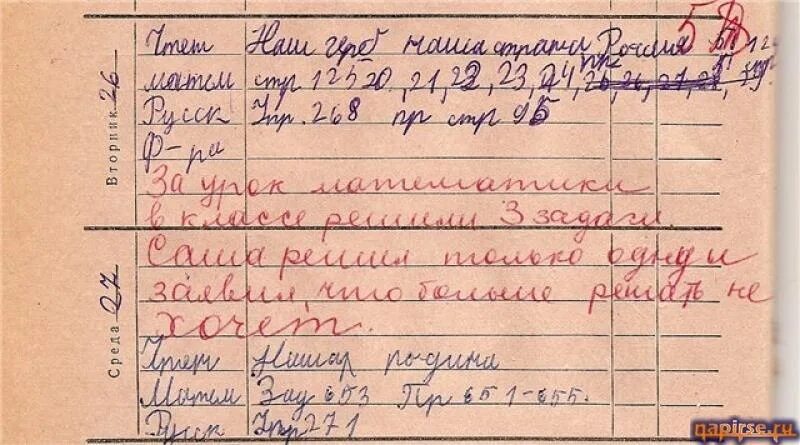 Чтен Наш герб наша страна Россия 5
матем стр 125 20, 21, 22, 23, 24
Русск Упр. 268 пр стр 95
Ф-ра
Вторник 26
За урок математики
в классе решили 3 задачи.
Саша решил только одну и
заявил, что больше решать не
хочет.
Среда 27
Чтен Нашая родина
Матем Зад 653 Пр 651-655.
Русск Упр 271
napirse.ru